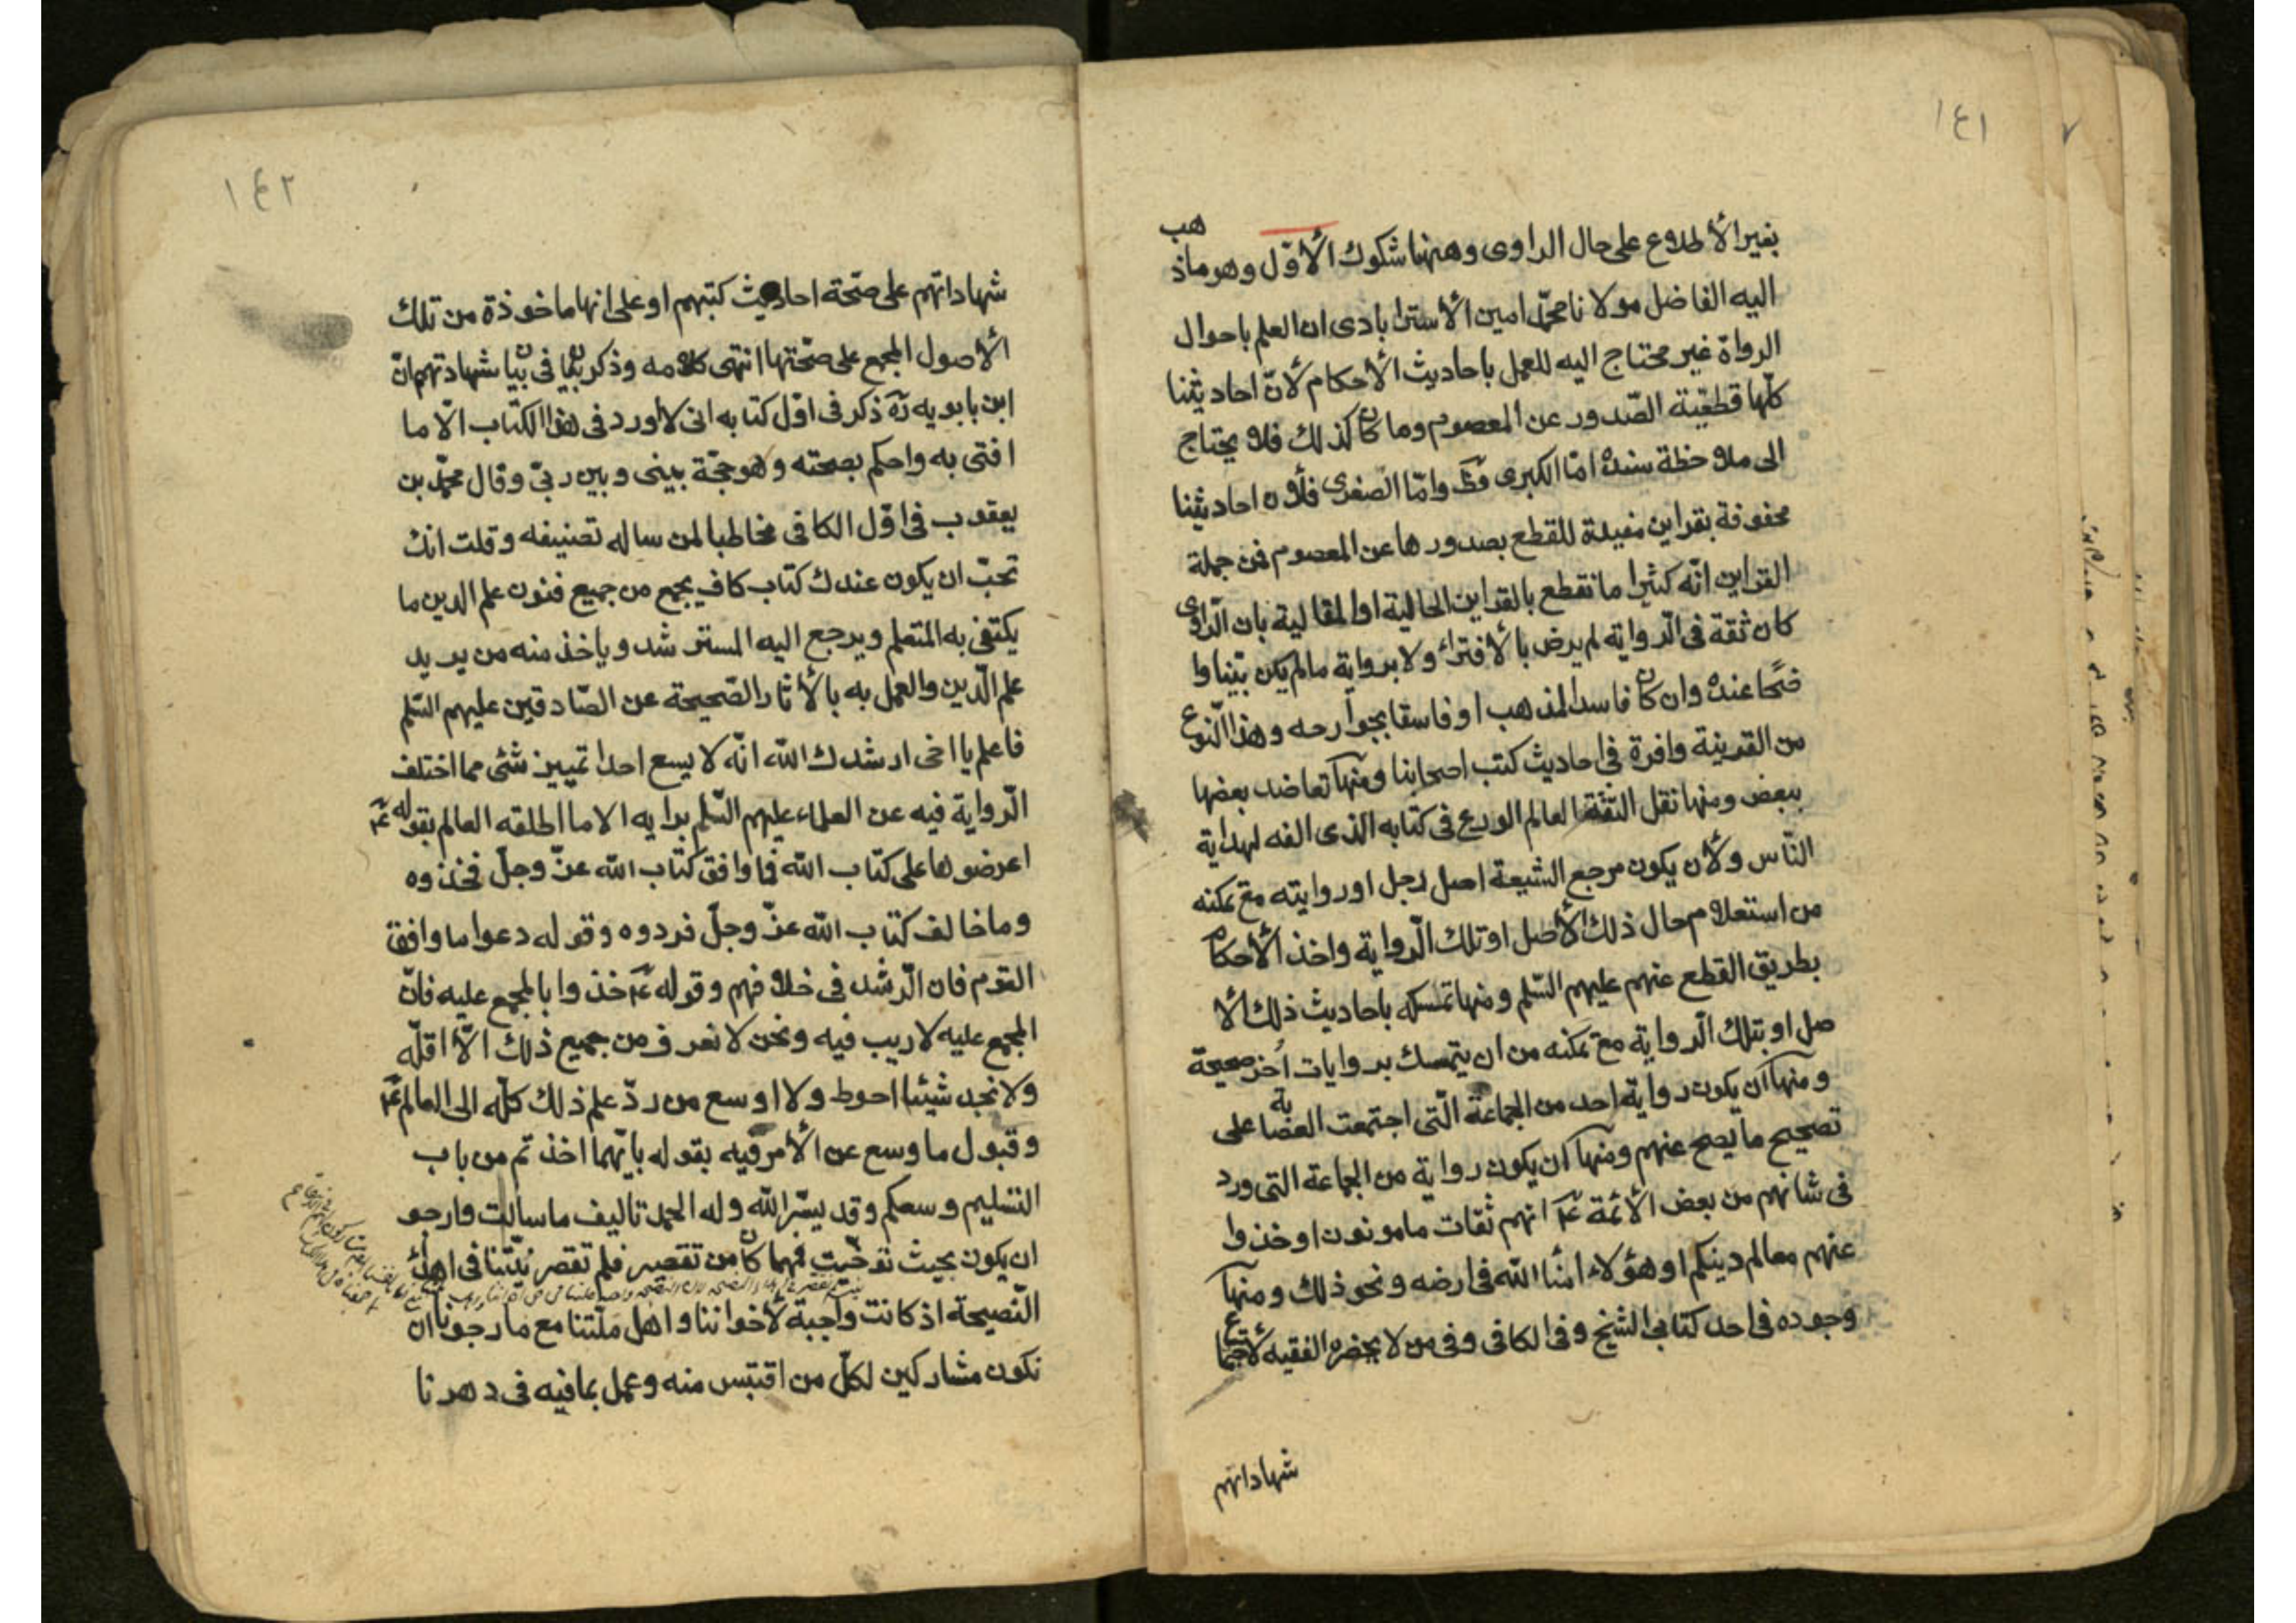 ١٤١
بغير الأطلاع على حال الراوى وههنا شكوك الأوّل وهو ماذهب
اليه الفاضل مولانا محمّد امين الأسترابادى ان العلم باحوال
الرواة غير محتاج اليه للعمل باحاديث الأحكام لأنّ احاديثنا
كلّها قطعيّة الصّدور عن المعصوم وما كان كذلك فلا يحتاج
الى ملاحظة سنده امّا الكبرى فظ وامّا الصّغرى فلأن احاديثنا
محفوفة بقراين مفيدة للقطع بصدورها عن المعصوم فمن جملة
القراين انّه كثيرا ما نقطع بالقراين الحالية او المقالية بان الرّاوى
كان ثقة فى الرّواية لم يرض بالأفتراء ولا برواية ما لم يكن بيّنا وا
ضحًا عنده وان كان فاسد المذهب او فاسقا بجوارحه وهذا النّوع
من القرينة وافرة فى احاديث كتب اصحابنا ومنها تعاضد بعضها
ببعض ومنها نقل الثّقة العالم الورع فى كتابه الذى الفه لهداية
النّاس ولأن يكون مرجع الشيعة اصل رجل او روايته مع تمكنه
من استعلام حال ذلك الأصل او تلك الرّواية واخذ الأحكام
بطريق القطع عنهم عليهم السّلم ومنها تمسكه باحاديث ذلك الأ
صل او بتلك الرّواية مع تمكنه من ان يتمسك بروايات اُخر صحيحة
ومنها ان يكون رواية احد من الجماعة الّتى اجتمعت العصابة على
تصحيح ما يصح عنهم ومنها ان يكون رواية من الجماعة التى ورد
فى شانهم من بعض الأئمّة عۤ انهم ثقات مامونون او خذوا
عنهم معالم دينكم او هؤلاء امناء اللّه فى ارضه ونحو ذلك ومنها
وجوده فى احد كتابى الشيخ وفى الكافى وفى من لا يحضره الفقيه لأجتماع
شهاداتهم
١٤٢
شهاداتهم على صحّة احاديث كتبهم او على انها ماخوذة من تلك
الأصول المجمع على صحّتها انتهى كلامه وذكر ايضا فى بيان شهادتهم انّ
ابن بابويه ره ذكر فى اوّل كتابه انى لا اورد فى هذا الكتاب الّا ما
افتى به واحكم بصحته وهو حجّة بينى وبين ربّى وقال محمّد بن
يعقوب فى اوّل الكافى مخاطبا لمن ساله تصنيفه وقلت انك
تحبّ ان يكون عندك كتاب كاف يجمع من جميع فنون علم الدين ما
يكتفى به المتعلم ويرجع اليه المسترشد وياخذ منه من يريد
علم الدّين والعمل به بالأثار الصّحيحة عن الصّادقين عليهم السّلم
فاعلم يا اخى ارشدك اللّه انّه لا يسع احدا تمييز شئى مما اختلف
الرّواية فيه عن العلماء عليهم السّلم برايه الا ما اطلقه العالم بقوله عۤ
اعرضوها على كتاب اللّه فما وافق كتاب اللّه عزّ وجلّ فخذوه
وما خالف كتاب اللّه عزّ وجلّ فردوه وقوله دعوا ما وافق
القوم فان الرّشد فى خلافهم وقوله عۤ خذوا بالمجمع عليه فانّ
المجمع عليه لا ريب فيه ونحن لا نعرف من جميع ذلك الّا اقلّه
ولا نجد شيئا احوط ولا اوسع من ردّ علم ذلك كلّه الى العالم عۤ
وقبول ما وسع عن الأمر فيه بقوله بايّهما اخذتم من باب
التسليم وسعكم وقد يسّر اللّه وله الحمد تاليف ما سالت وارجو
ان يكون بحيث توخّيت فهما كان من تقصير فلم تقصر نيّتنا فى اهداء
النّصيحة اذ كانت واجبة لأخواننا واهل ملّتنا مع ما رجونا ان
نكون مشاركين لكلّ من اقتبس منه وعمل بمافيه فى دهرنا